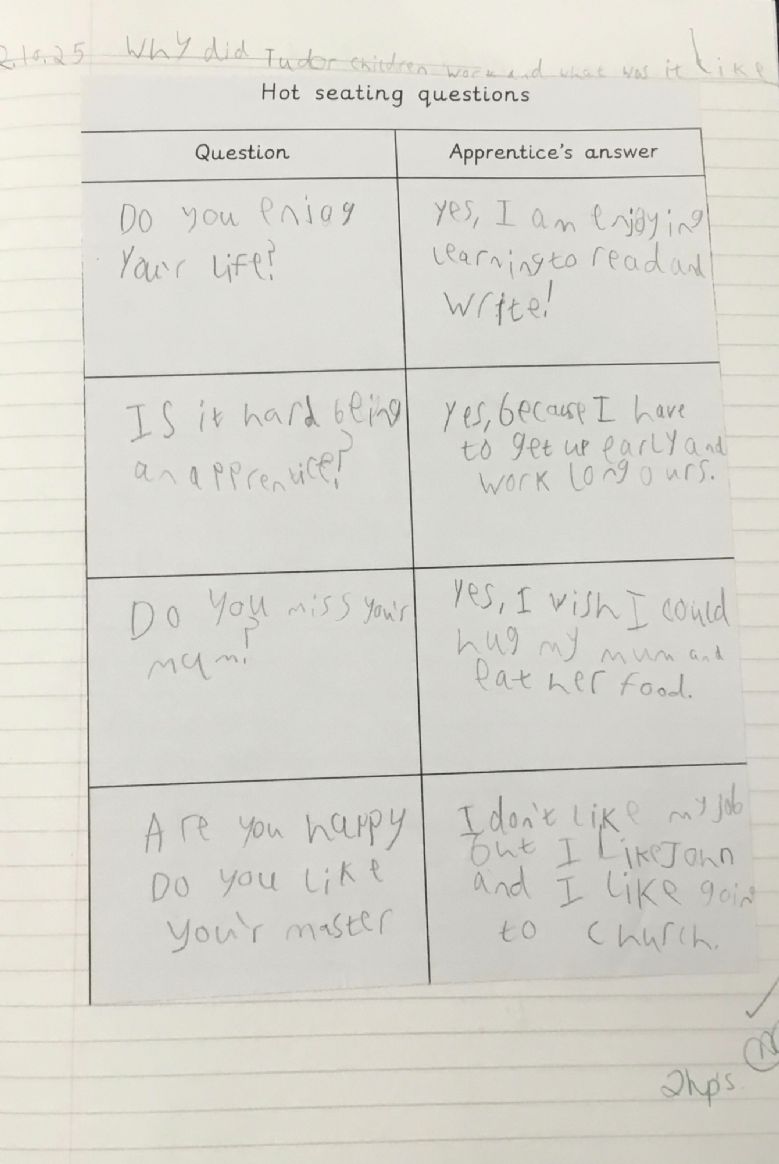 2.10.25 Why did Tudor children work and what was it like
Hot seating questions
Question
Apprentice's answer
Do you enjoy
You'r life?
yes, I am enjoying
learning to read and
write!
Is it hard being
an apprentice?
yes, because I have
to get up early and
work long ours.
Do you miss you'r
mum?
yes, I wish I could
hug my mum and
eat her food.
Are you happy
Do you like
you'r master
I don't like my job
but I like John
and I like goin
to church.
2hps